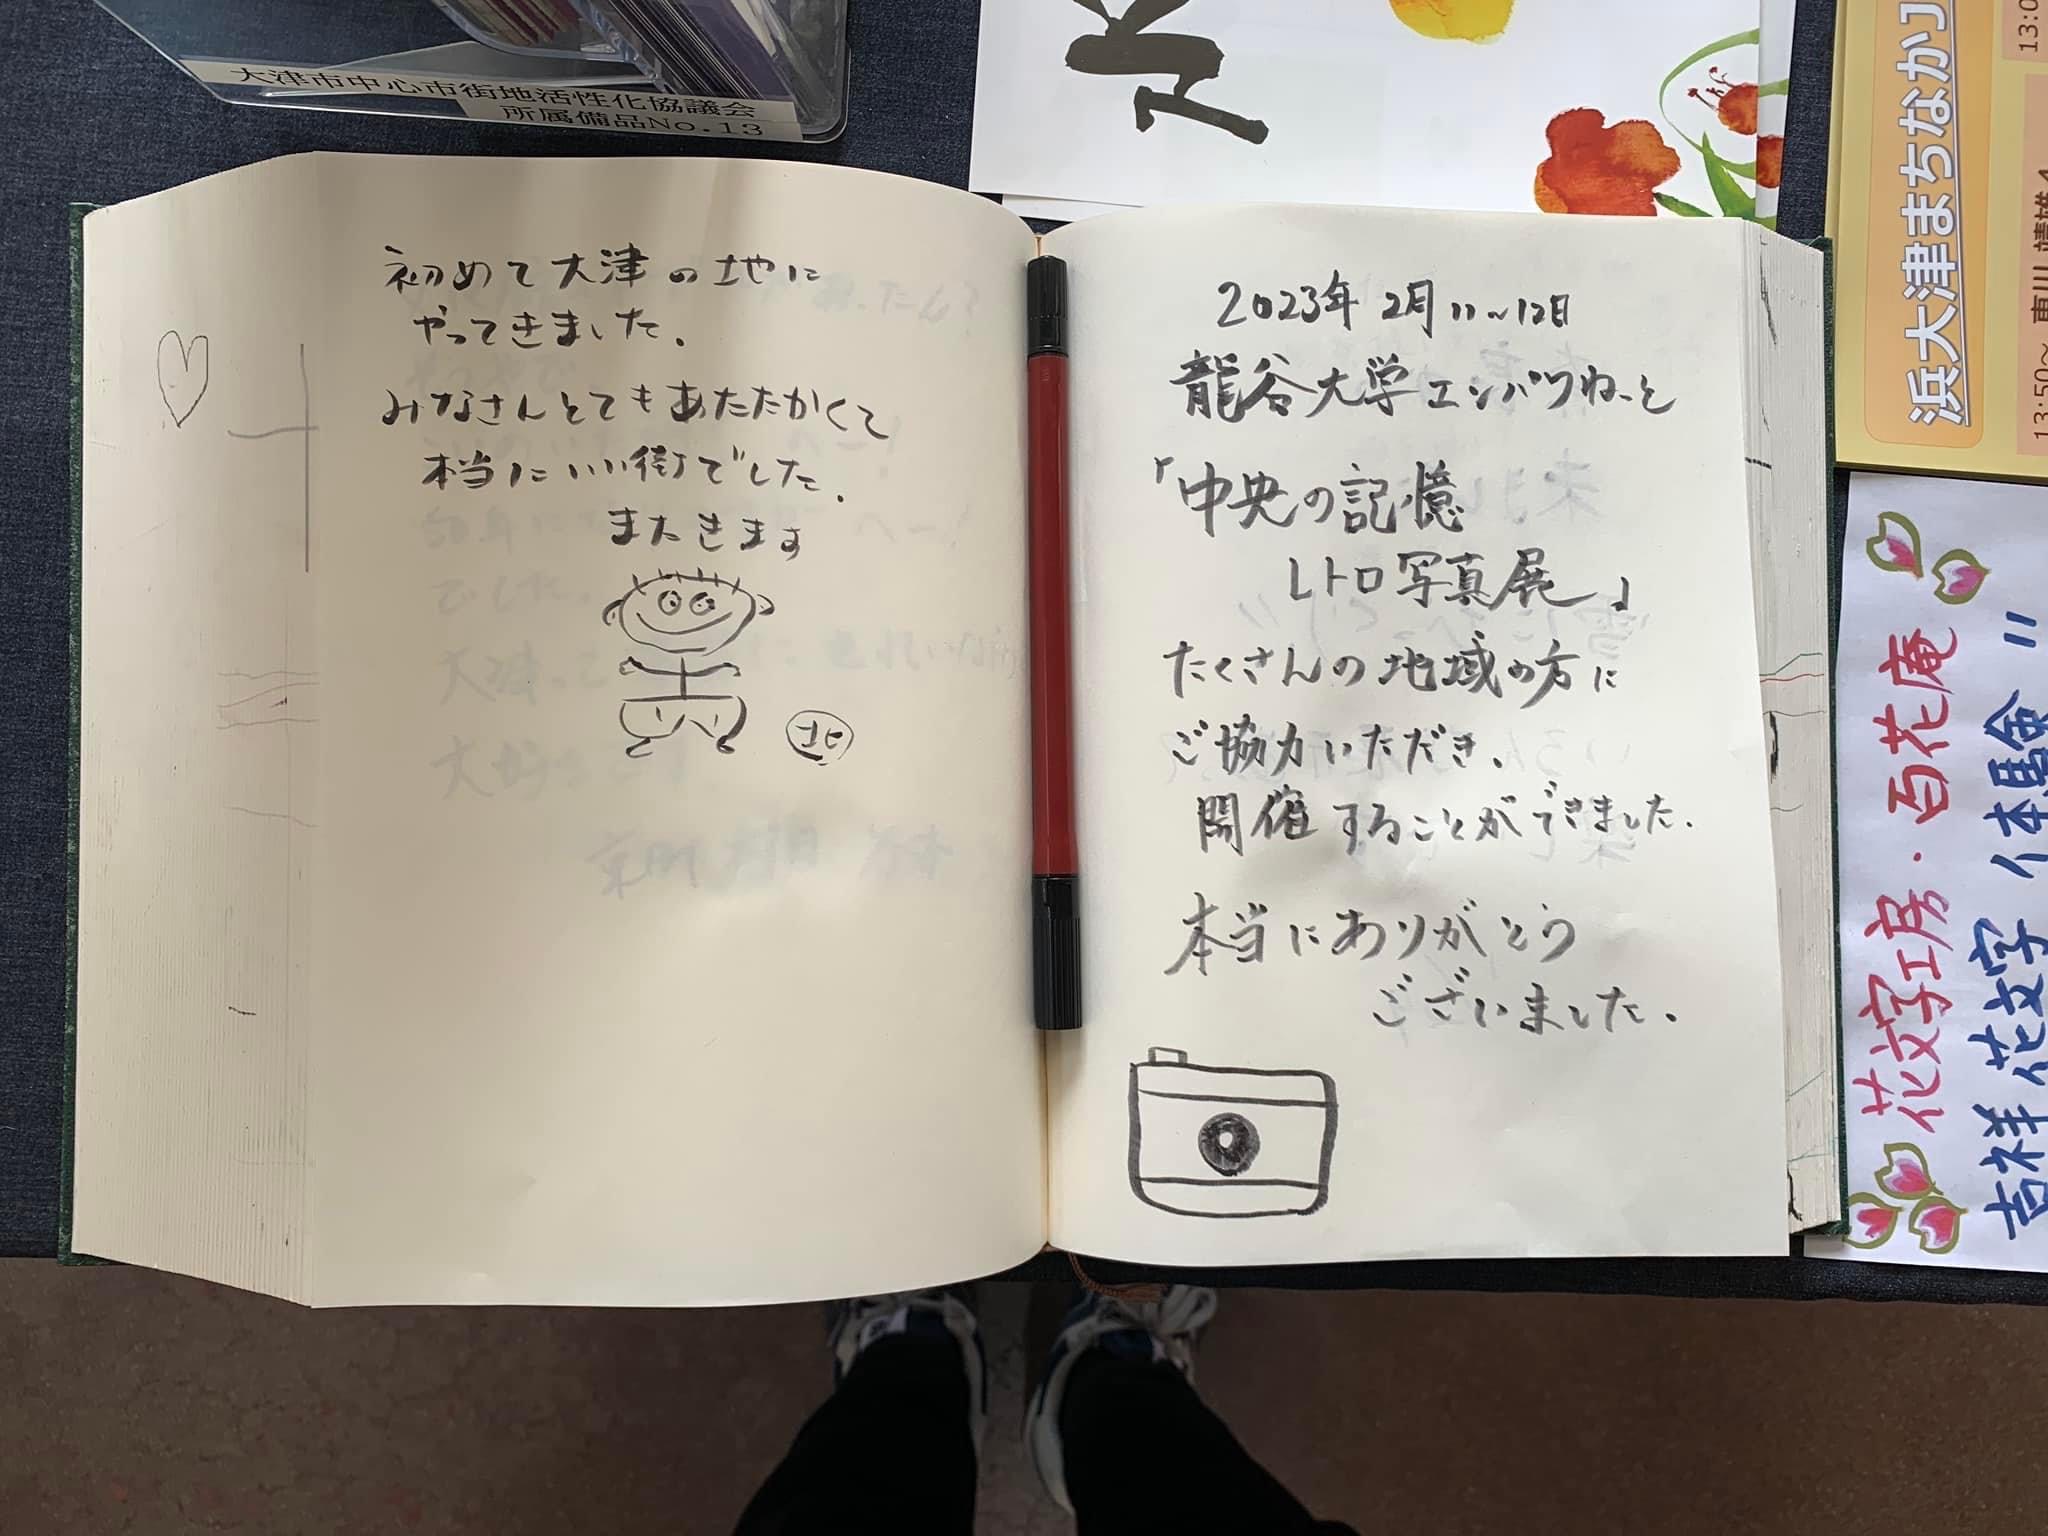 大津市中心市街地活性化協議会
所属備品No.13
初めて大津の地に
やってきました.
みなさんとてもあたたかくて
本当にいい街でした.
またきます
北
2023年 2月 11~12日
龍谷大学エンパワねっと
「中央の記憶
レトロ写真展」
たくさんの地域の方に
ご協力いただき、
開催することができました.
本当にありがとう
ございました.
浜大津まちなか
13:50~
花文字工房・百花庵
吉祥花文字 体験